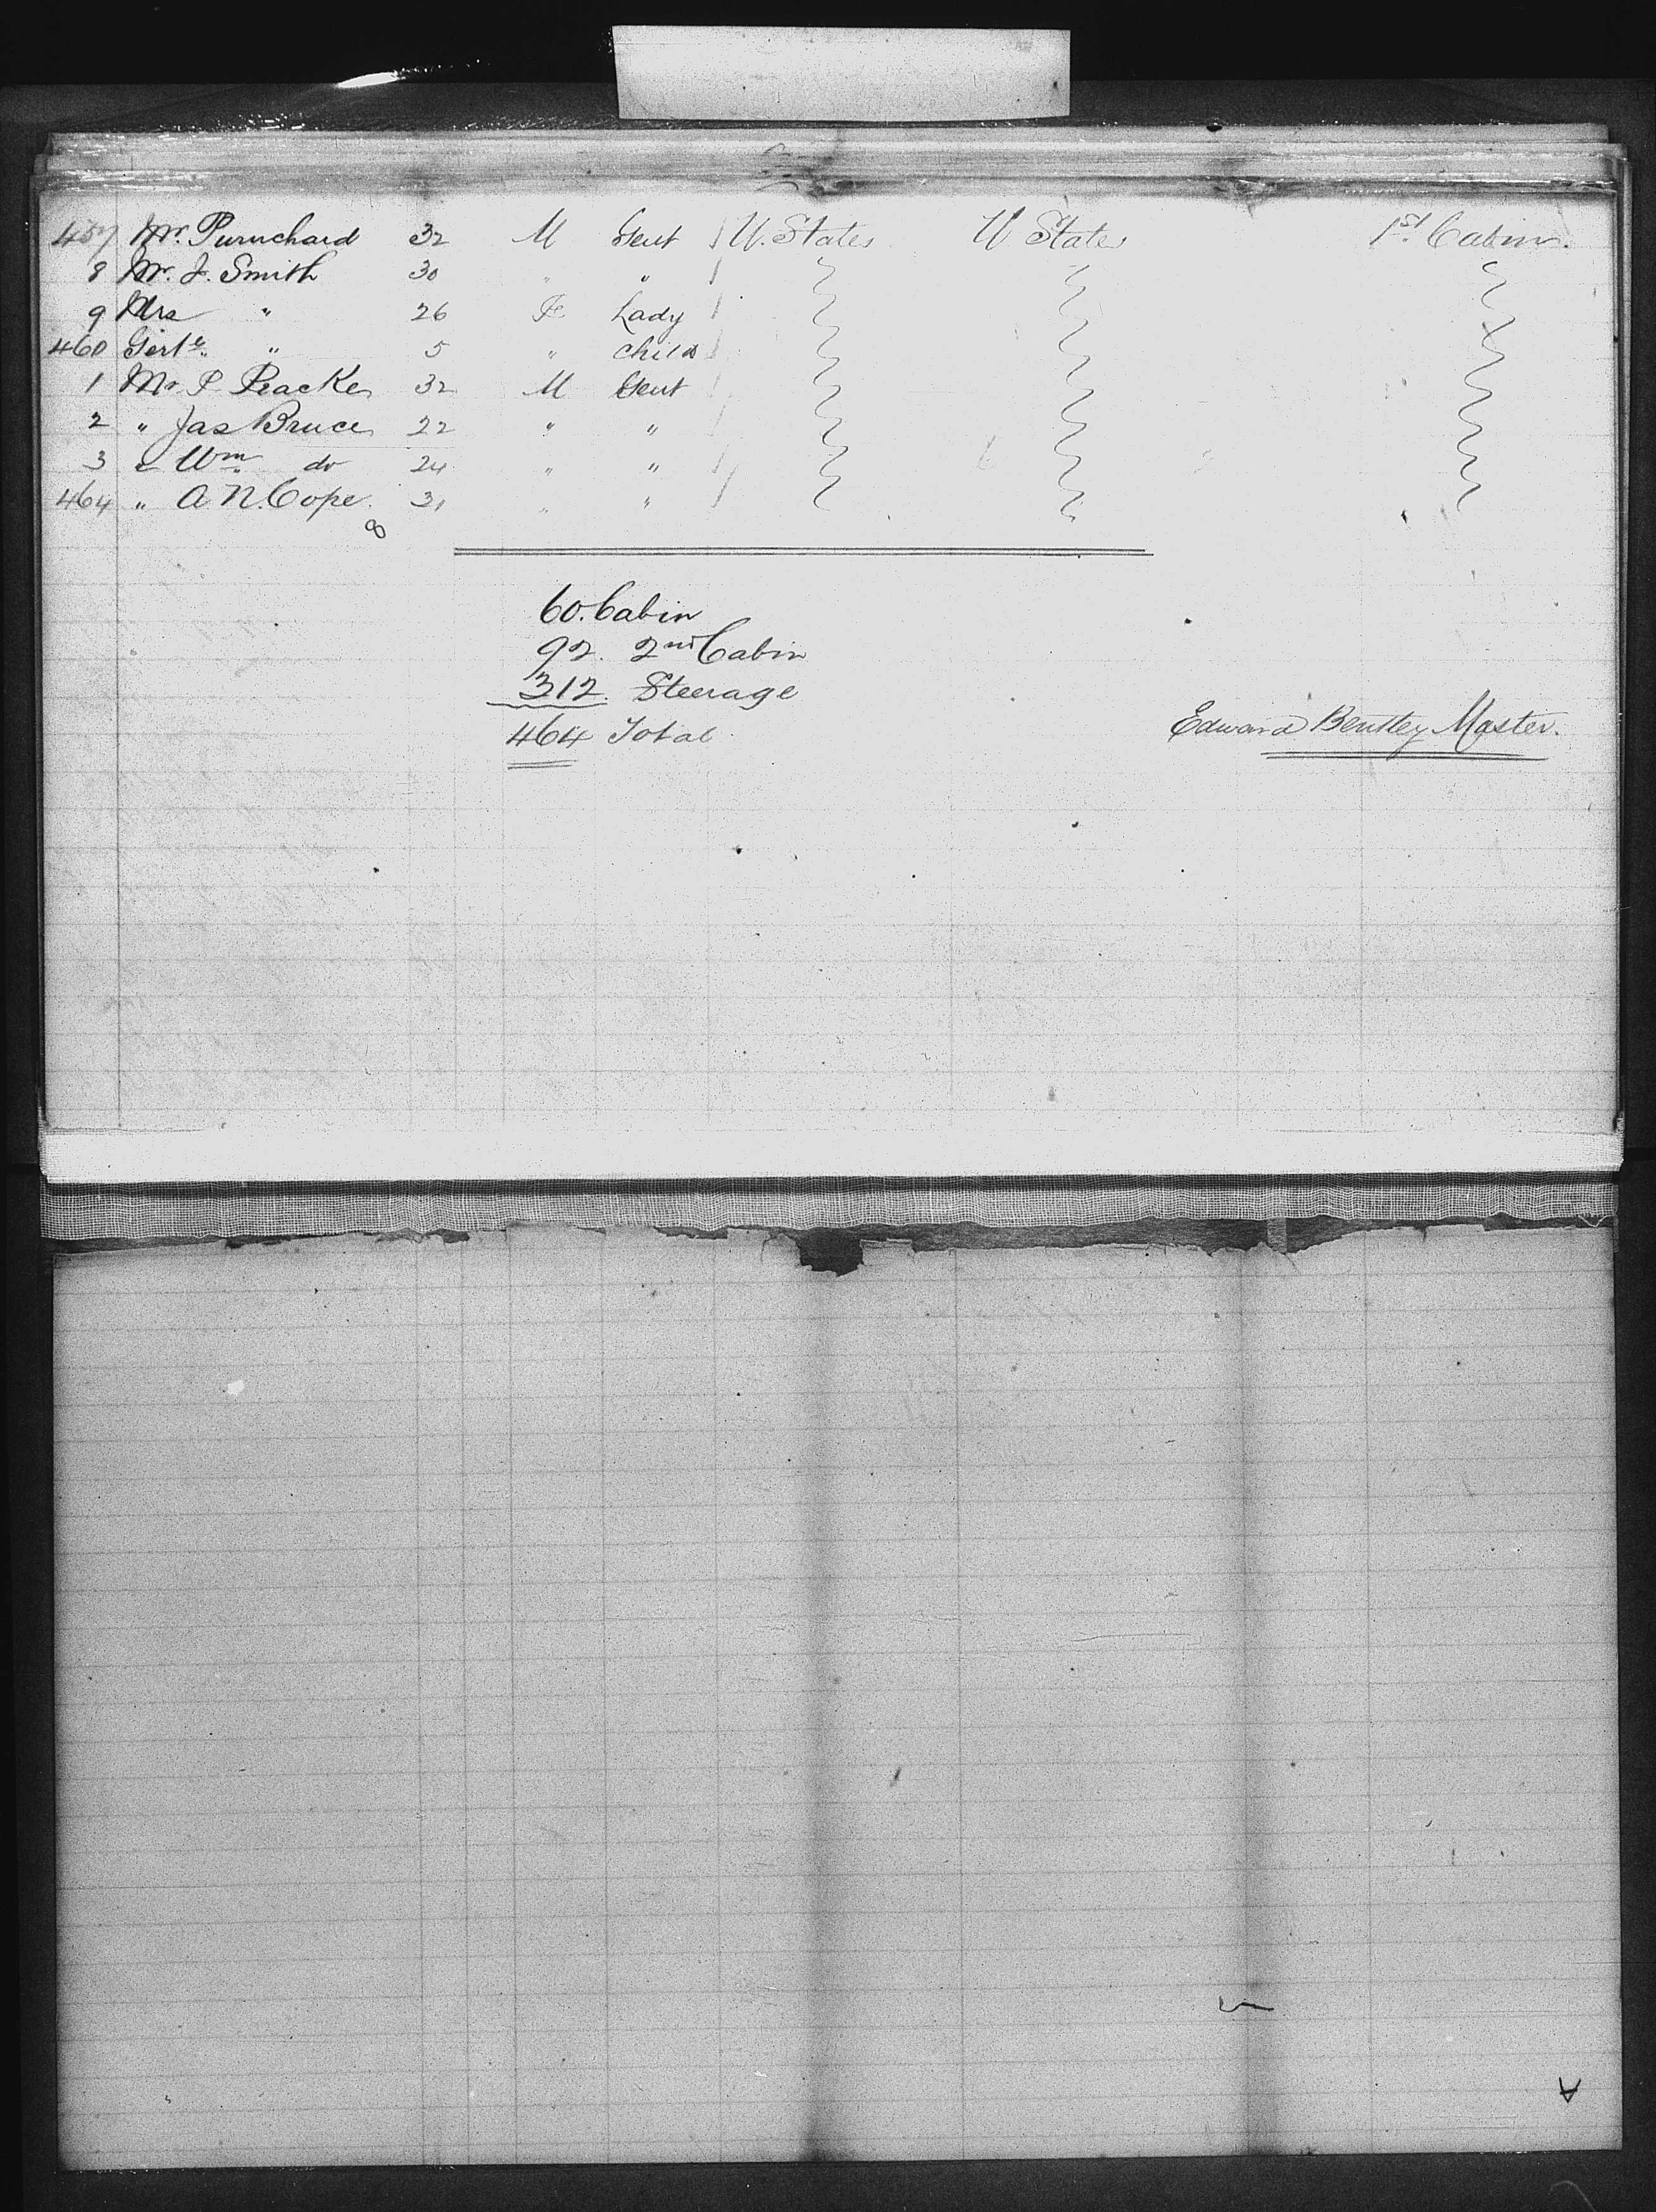 457 Mr. Purnchard 32 M Gent U. States U States 1st Cabin.
8 Mr. J. Smith 30 " "
9 Mrs " 26 Fe Lady
460 Gerte. " 5 " Child
1 Mr P. Peacke 32 M Gent
2 " Jas Bruce 22 " "
3 " Wm. do 24 " "
464 " A N. Cope. 31 " "
8
60. Cabin
92. 2nd Cabin
312. Steerage
464 Total
Edward Bentley Master.